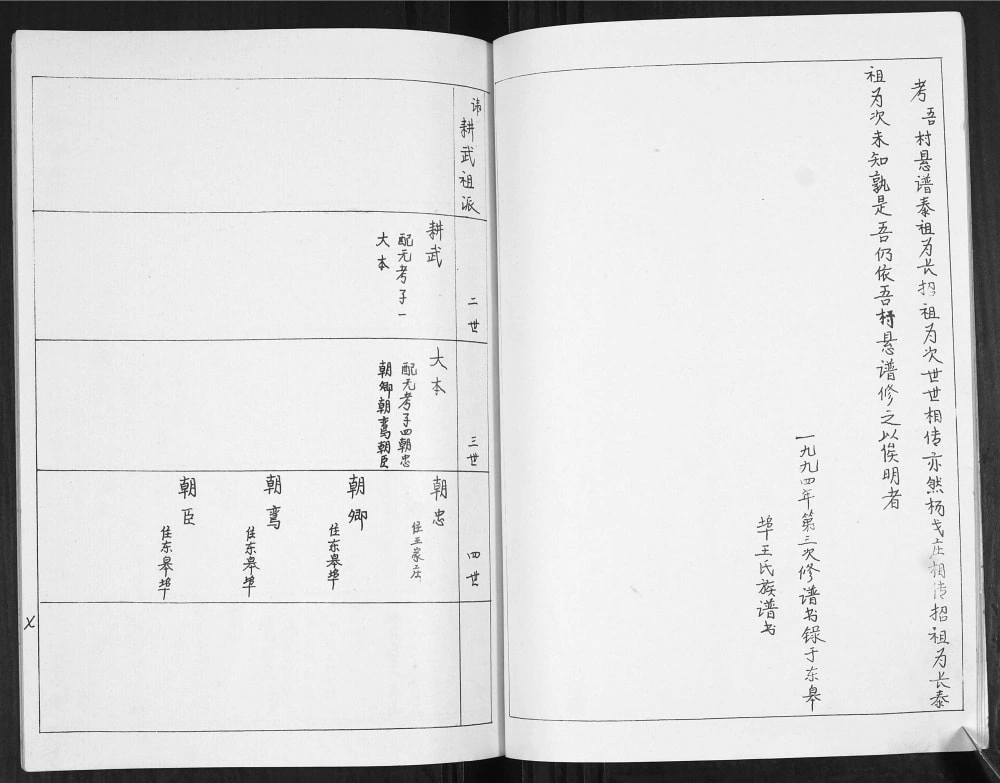 考 吾村悬谱泰祖为长招祖为次世世相传亦然杨戈庄相传招祖为长泰
祖为次未知孰是吾仍依吾村悬谱修之以俟明者
一九九四年第三次修谱书录于东皋
埠王氏族谱书
讳耕武祖派
二世
耕武
配元考子一
大本
三世
大本
配无考子四朝忠
朝卿朝鸾朝臣
四世
朝忠
住王家庄
朝卿
住东皋埠
朝鸾
住东皋埠
朝臣
住东皋埠
X